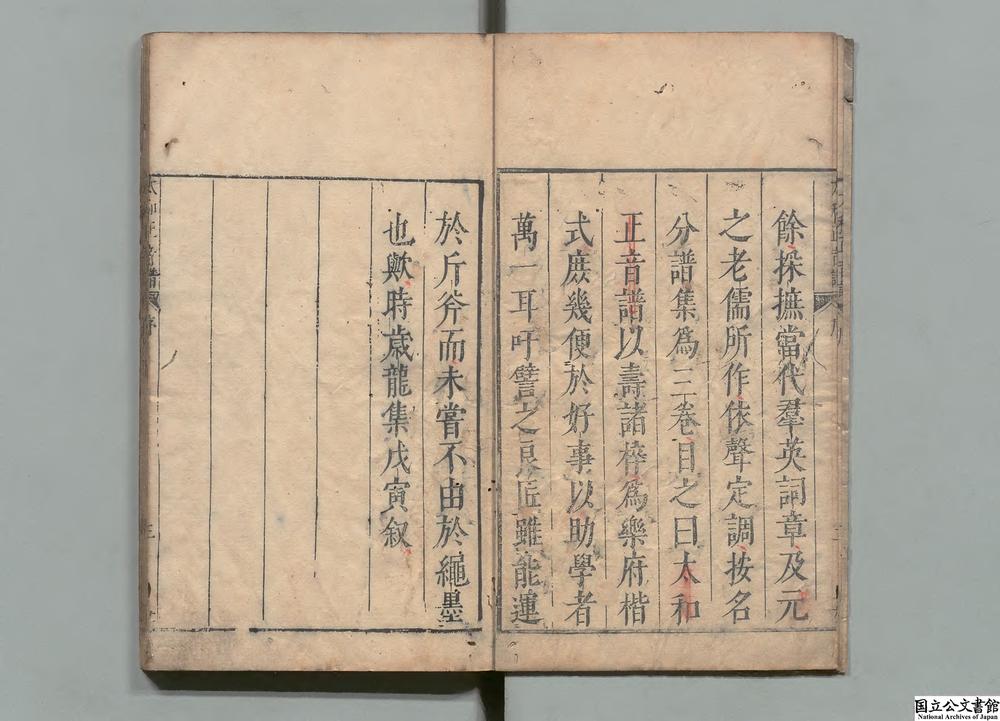 餘採撫當代羣英詞章及元
之老儒所作依聲定調按名
分譜集爲三卷目之曰太和
正音譜以壽諸梓爲樂府楷
式庶幾便於好事以助學者
萬一耳吁譬之良匠雖能運
於斤斧而未嘗不由於繩墨
也歟時歲龍集戊寅叙
太和正音譜 序
国立公文書館
National Archives of Japan